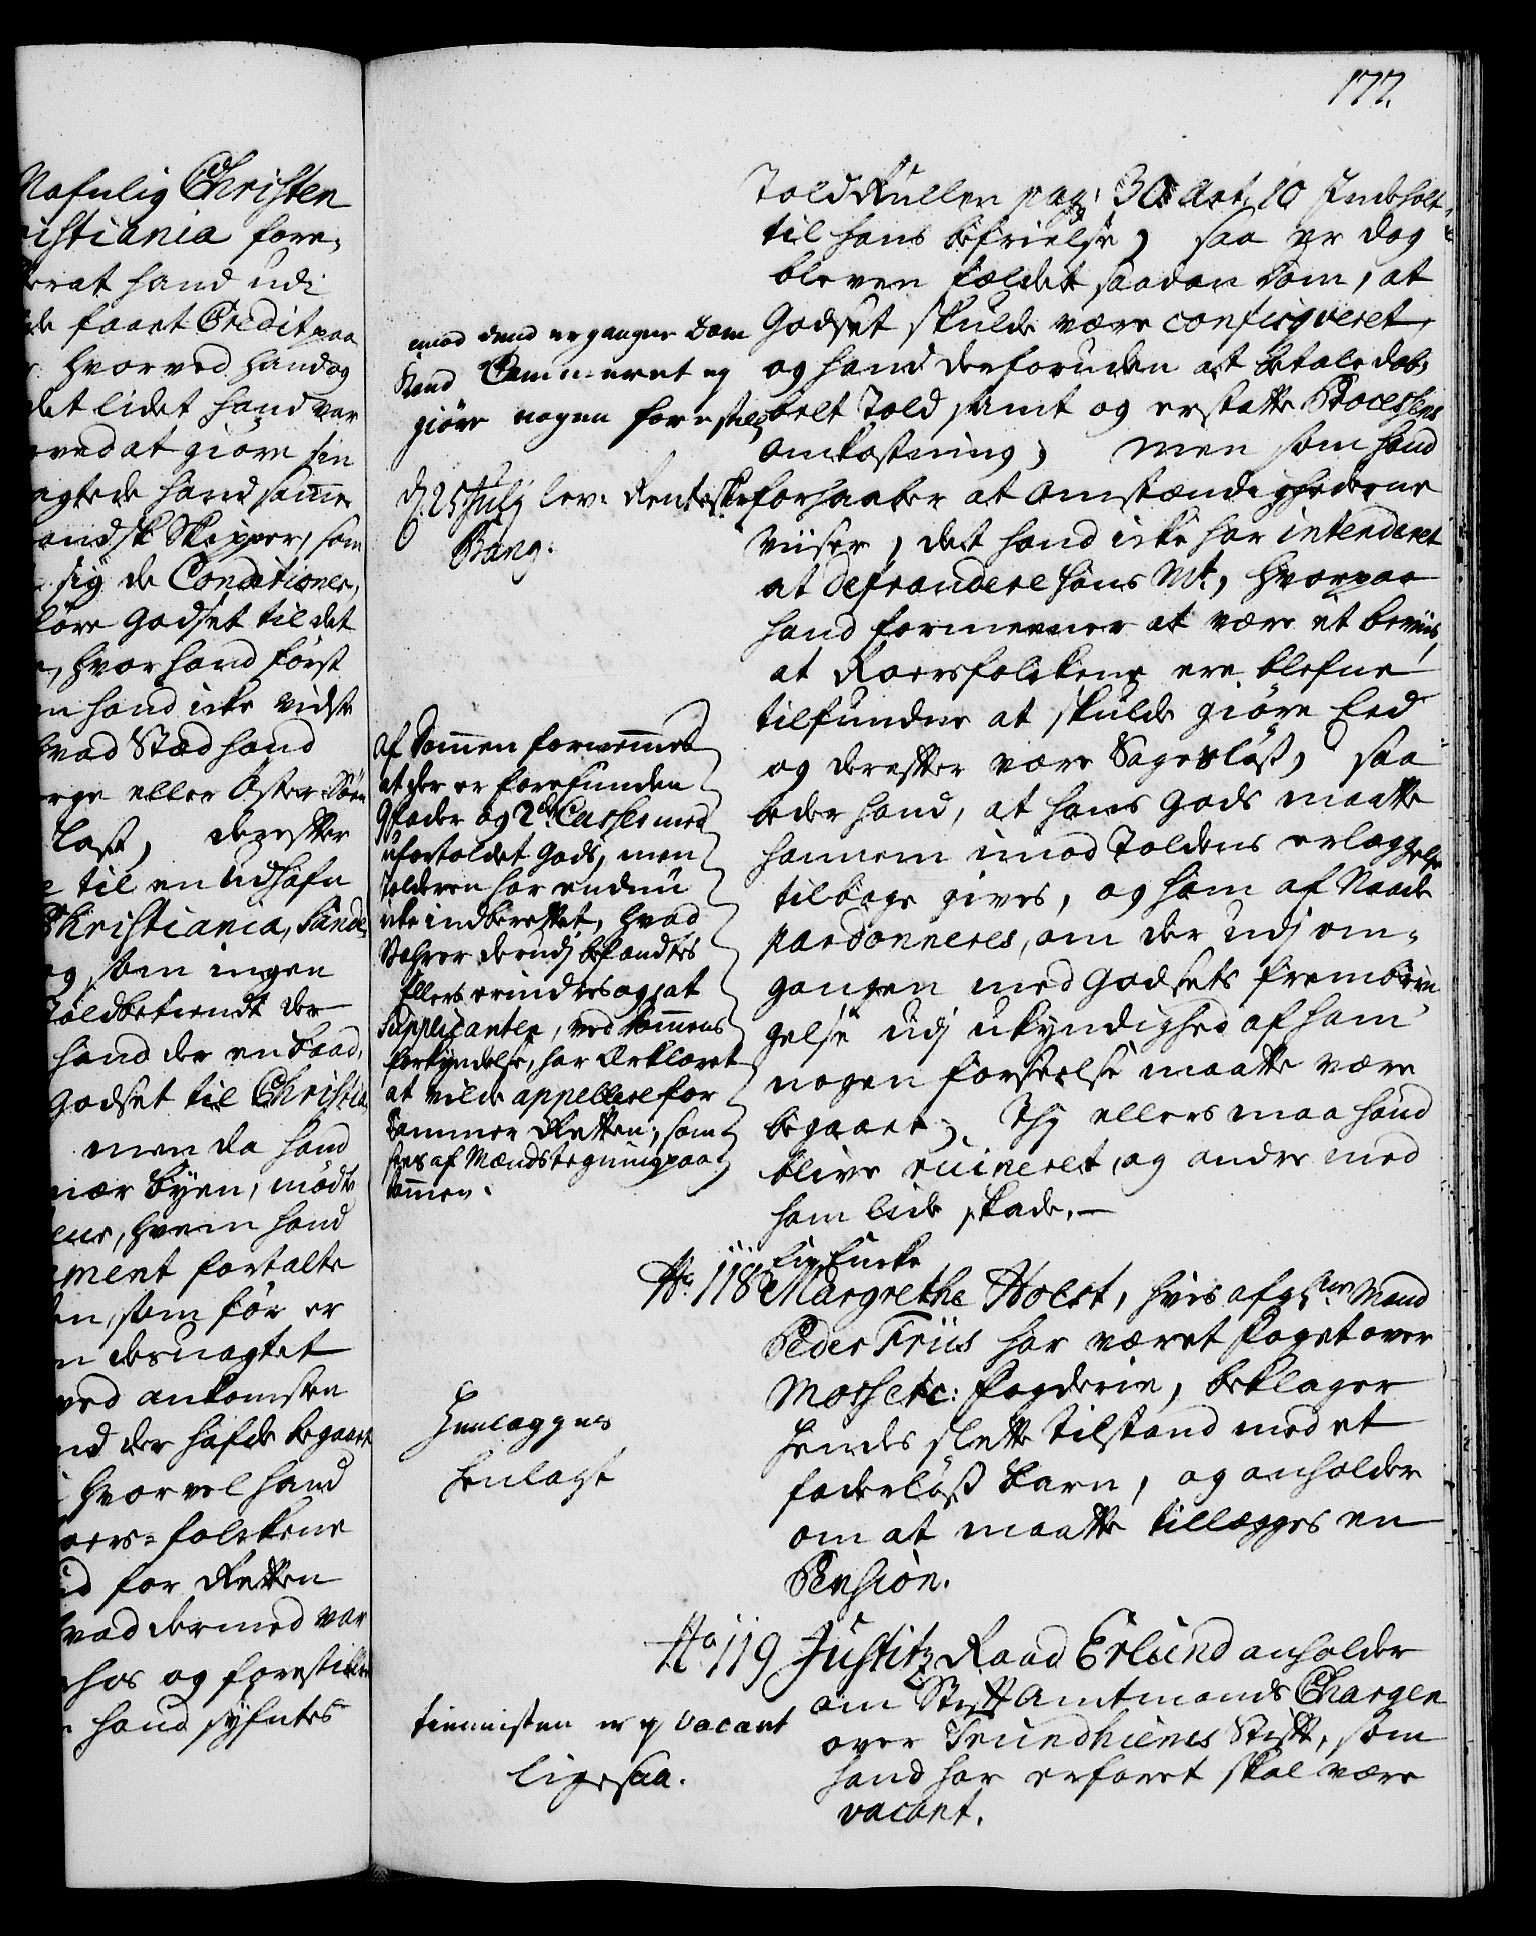 177.
Nafnlig Christen
istiania fore,
erat hand udi
de faaet Credit paa
hvorved hand og
det lidet hand var
ved at giöre sin
agtede hand samme
andsk Skipper, som
sig de Conditioner,
före Godset til det
hvor hand först
hand icke vidste
hvad Stæd hand
orge eller Öster Söen
Last, derefter
til en Udhafn
Christiania, Sande,
og som ingen
Toldbetiendt der
hand der en Baad,
Godset til Christia
men da hand
nær Byen, mödte
hvem hand
ment fortalte
som för er
desuagtet
ved ankomsten
hand der hafde begaaet
hvorvel hand
oers-folckene
for Retten
hvad dermed var
hos og forestiller
hand syfntes
ToldRullen pag: 30 Art. 10 Indeholt
til hans befrielse, saa er dog
bleven fældet saadan Dom, at
Godset skulde være confisqveret,
og hand desforuden at betale dob,
belt Told samt og erstatte Processens
Omkostning, men som hand
forhaaber at Omstændighederne
viiser, det hand icke har intenderet
at defraudere Hans Mt., hvorpaa
hand formeener at være et beviis,
at Roersfolckene ere blefne
tilfundne at skulde giöre Eed
og derefter være Sagesløs, saa
beder hand, at hans Gods maatte
hannem imod Toldens erlæggelse
tilbage gives, og ham af Naade
pardonneres, om der udj om,
gangen med Godsets frembrin
gelse udj ukyndighed af ham
nogen forseelse maatte være
begaaet, Thj ellers maa hand
blive ruineret, og andre med
ham lide skade.
imod dend ergangne Dom
kand Cammeret ej
giöre nogen forestill:
d. 25 July lev: Renteskr
Bang.
af Dommen fornemmes
at der er forefunden
9 Foder og 2de Casser med
ufortoldet Gods, men
Tolderen har endnu
icke indberettet, hvad
Vahrer derudj befandtes
Ellers erindres og, at
Supplicanten, ved Dommens
forkyndelse, har Erklæret
at vilde appellere for
Cammer Retten, som
sees af Mændstegning paa
Dommen.
No 118 Enfrue
Margrethe Holst, hvis afg. Mand
Peder Friis har været Foget over
Moss etc: Fogderie, beklager
hendes slette tilstand med et
faderløß Barn, og anholder
om at maatte tillægges en
Pension.
Henlægges
henlagt
No 119 Justitz Raad Erlund anholder
om StiftAmtmands Chargen
over Trundhiems Stift, som
hand har erfaret skal være
vacant.
tienisten er ej vacant
ligesaa.